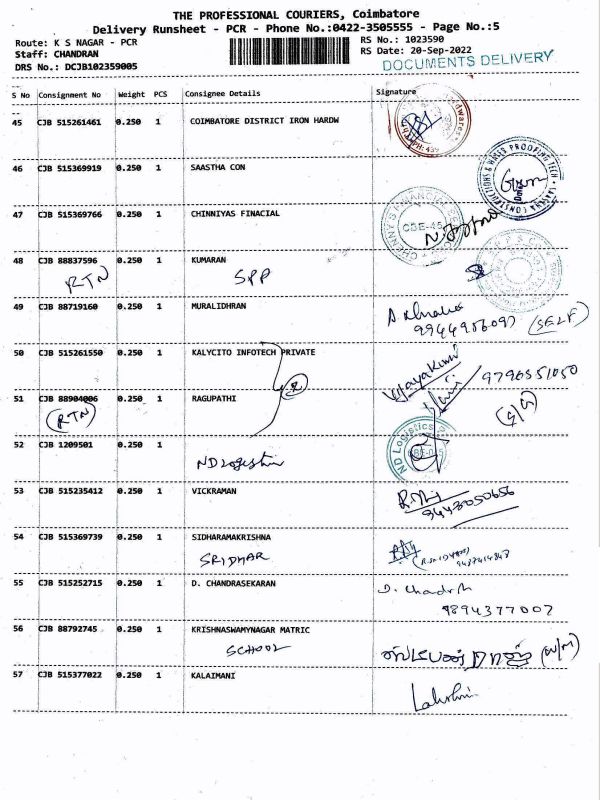 THE PROFESSIONAL COURIERS, Coimbatore
Delivery Runsheet - PCR - Phone No.:0422-3505555 - Page No.:5
Route: K S NAGAR - PCR RS No.: 1023590
Staff: CHANDRAN RS Date: 20-Sep-2022
DRS No.: DCJB102359005 DOCUMENTS DELIVERY
S No Consignment No Weight PCS Consignee Details Signature
45 CJB 515261461 0.250 1 COIMBATORE DISTRICT IRON HARDW
46 CJB 515369919 0.250 1 SAASTHA CON
47 CJB 515369766 0.250 1 CHINNIYAS FINACIAL
48 CJB 88837596 0.250 1 KUMARAN
RTN SPP
49 CJB 88719160 0.250 1 MURALIDHRAN
9944956097 (SELF)
50 CJB 515261550 0.250 1 KALYCITO INFOTECH PRIVATE
Vijayakumar 9790551050
51 CJB 88904006 0.250 1 RAGUPATHI
(RTN)
52 CJB 1209501 0.250 1
ND Logistics
53 CJB 515235412 0.250 1 VICKRAMAN
9443050656
54 CJB 515369739 0.250 1 SIDHARAMAKRISHNA
SRIDHAR
55 CJB 515252715 0.250 1 D. CHANDRASEKARAN
9894377007
56 CJB 88792745 0.250 1 KRISHNASWAMYNAGAR MATRIC
SCHOOL
57 CJB 515377022 0.250 1 KALAIMANI
Lakshmi